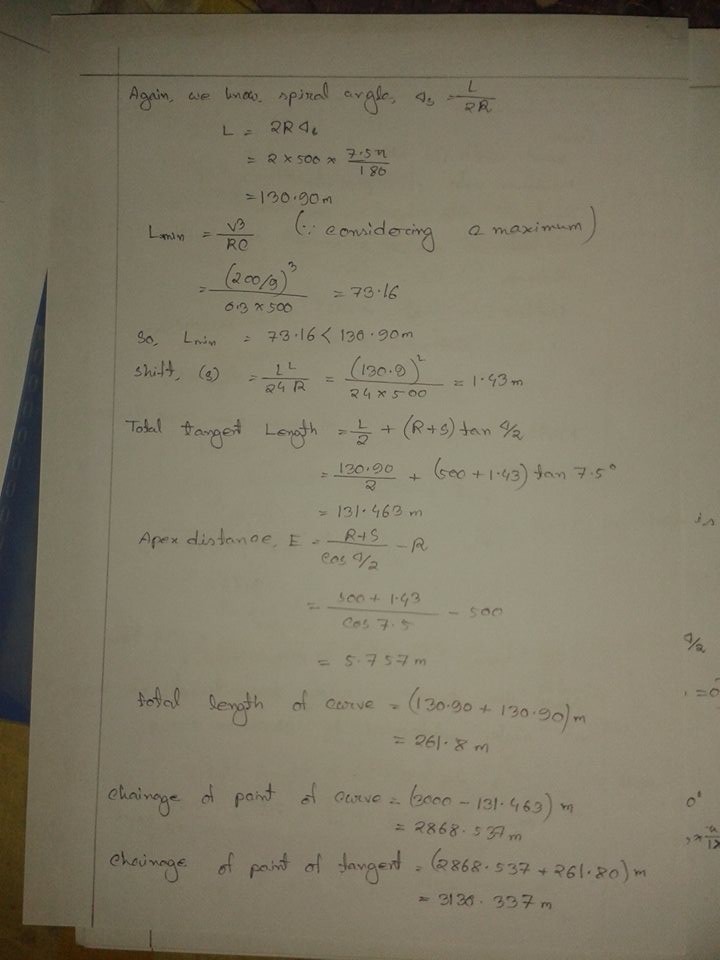 Again, we know, spiral angle, Δs = L/2R
L = 2RΔs
= 2 × 500 × 7.5π/180
= 130.90 m
Lmin = V3/RC (∵ considering a maximum)
= (200/9)³/0.3×500 = 73.16
So, Lmin = 73.16 < 130.90m
shift, (s) = L²/24R = (130.9)²/24×500 = 1.43 m
Total tangent Length = L/2 + (R+S) tan Δ/2
= 130.90/2 + (500 + 1.43) tan 7.5°
= 131.463 m
Apex distance, E = R+S/cos Δ/2 − R
= 500 + 1.43/cos 7.5 − 500
= 5.757 m
total length of curve = (130.90 + 130.90) m
= 261.8 m
chainage of point of curve = (3000 − 131.463) m
= 2868.537m
chainage of point of tangent = (2868.537 + 261.80) m
= 3130.337 m
Δ/2
= 0
0°